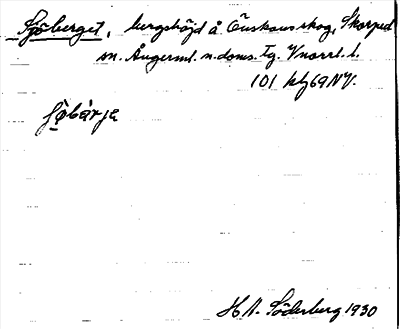 Sjöberget, bergshöjd å Önskans skog, Skorped
sn. Ångerml. n. doms. tg. Vnorrl. l.
101 kbl 69 NV.
ʃø̀bàrjɑ
H. N. Söderberg 1930